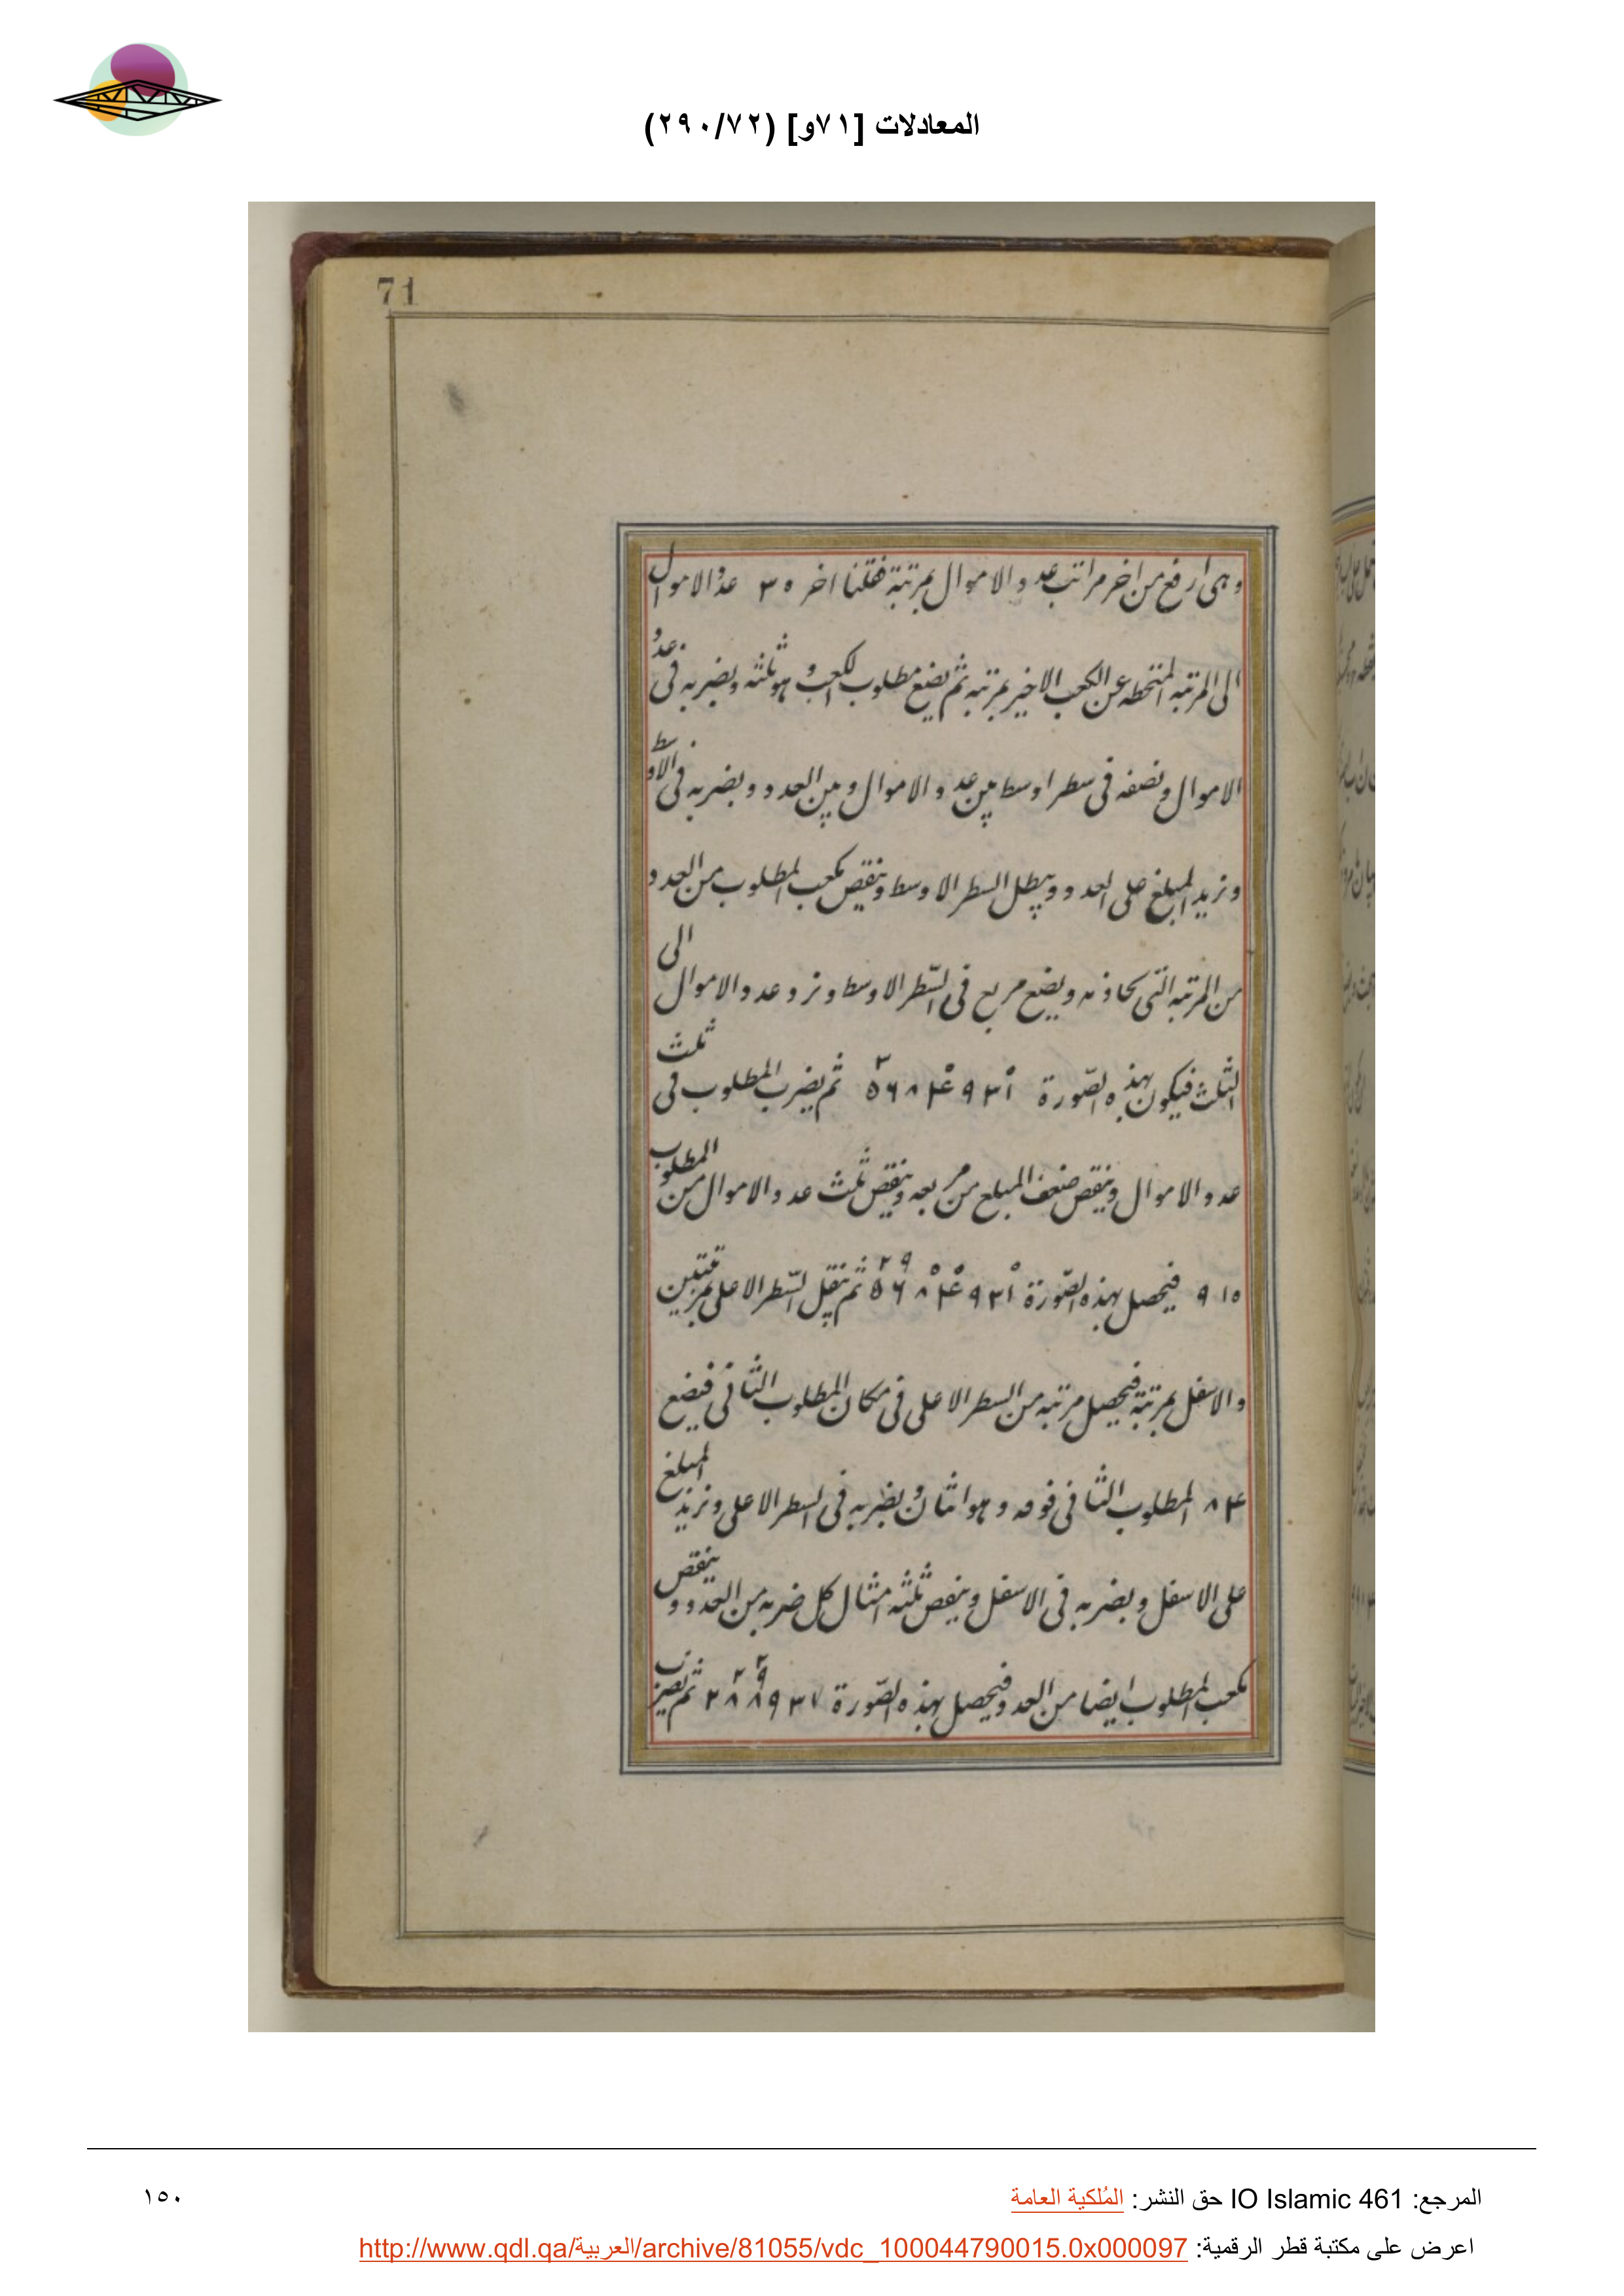 المعادلات [٧١و] (٢٩٠/٧٢)
71
وهى ارفع من اخر مراتب عدد الاموال بمرتبة فقلنا اخر ٣٠ عدد الاموال
الى المرتبه المنحطه عن الكعب الاخير بمرتبه ثم يضع مطلوب الكعب وهو ثلثه ويضربه فى عدد
الاموال ونصفه فى سطر اوسط بين عدد الاموال وبين العدد ويضربه فى الاوسط
ونزيد المبلغ على العدد ويبطل السطر الاوسط وينقص مكعب المطلوب من العدد
من المرتبه التى تحاذيه ويضع مربع فى السّطر الاوسط ونرد عدد الاموال الى
الثلث فيكون بهذه الصّورة ثم يضرب المطلوب فى ثلث
عدد الاموال وينقص ضعف المبلغ من مربعه وينقص ثلث عدد الاموال من المطلوب
٩١٥ فيحصل بهذه الصّورة ثم ننقل السّطر الاعلى بمرتبتين
والاسفل بمرتبة فيحصل مرتبه من السطر الاعلى فى مكان المطلوب الثانى فيضع
٨٤ المطلوب الثانى فوقه وهو اثنان ويضربه فى السطر الاعلى ونزيد المبلغ
على الاسفل ويضربه فى الاسفل وينقص ثلثه امثال كل ضربه من العدد وينقص
مكعب المطلوب ايضا من العدد فيحصل بهذه الصّورة ثم يضرب
المرجع: IO Islamic 461 حق النشر: المُلكية العامة
١٥٠
اعرض على مكتبة قطر الرقمية: http://www.qdl.qa/العربية/archive/81055/vdc_100044790015.0x000097